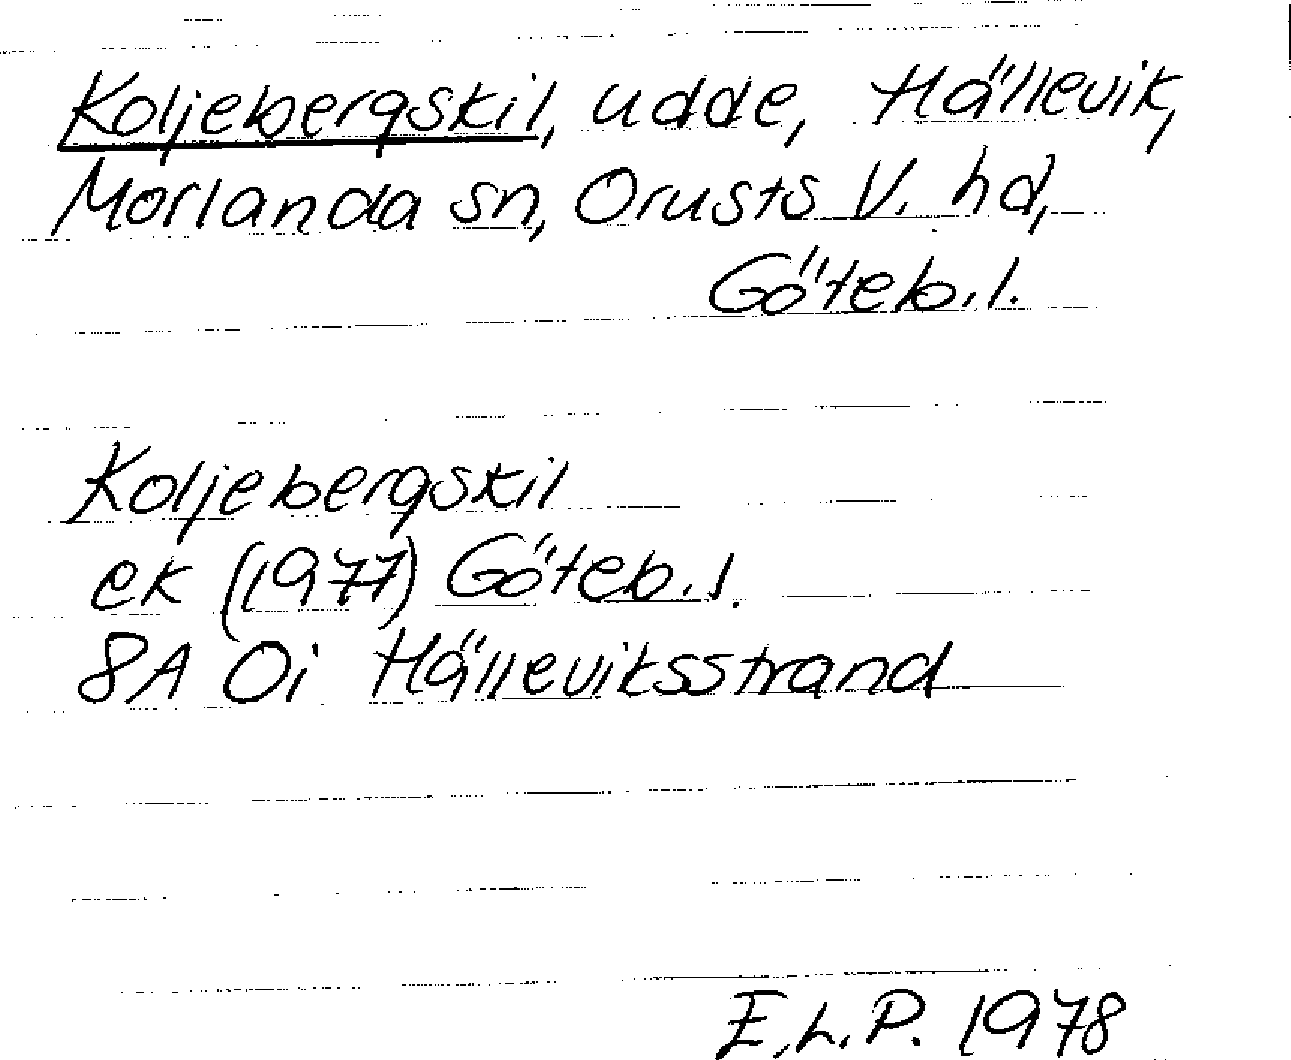 Koljebergskil, udde, Hällevik,
Morlanda sn, Orusts V. hd,
Göteb.l.
Koljebergskil
ek (1977) Göteb.l.
8A 0i Hälleviksstrand
E.L.P. 1978